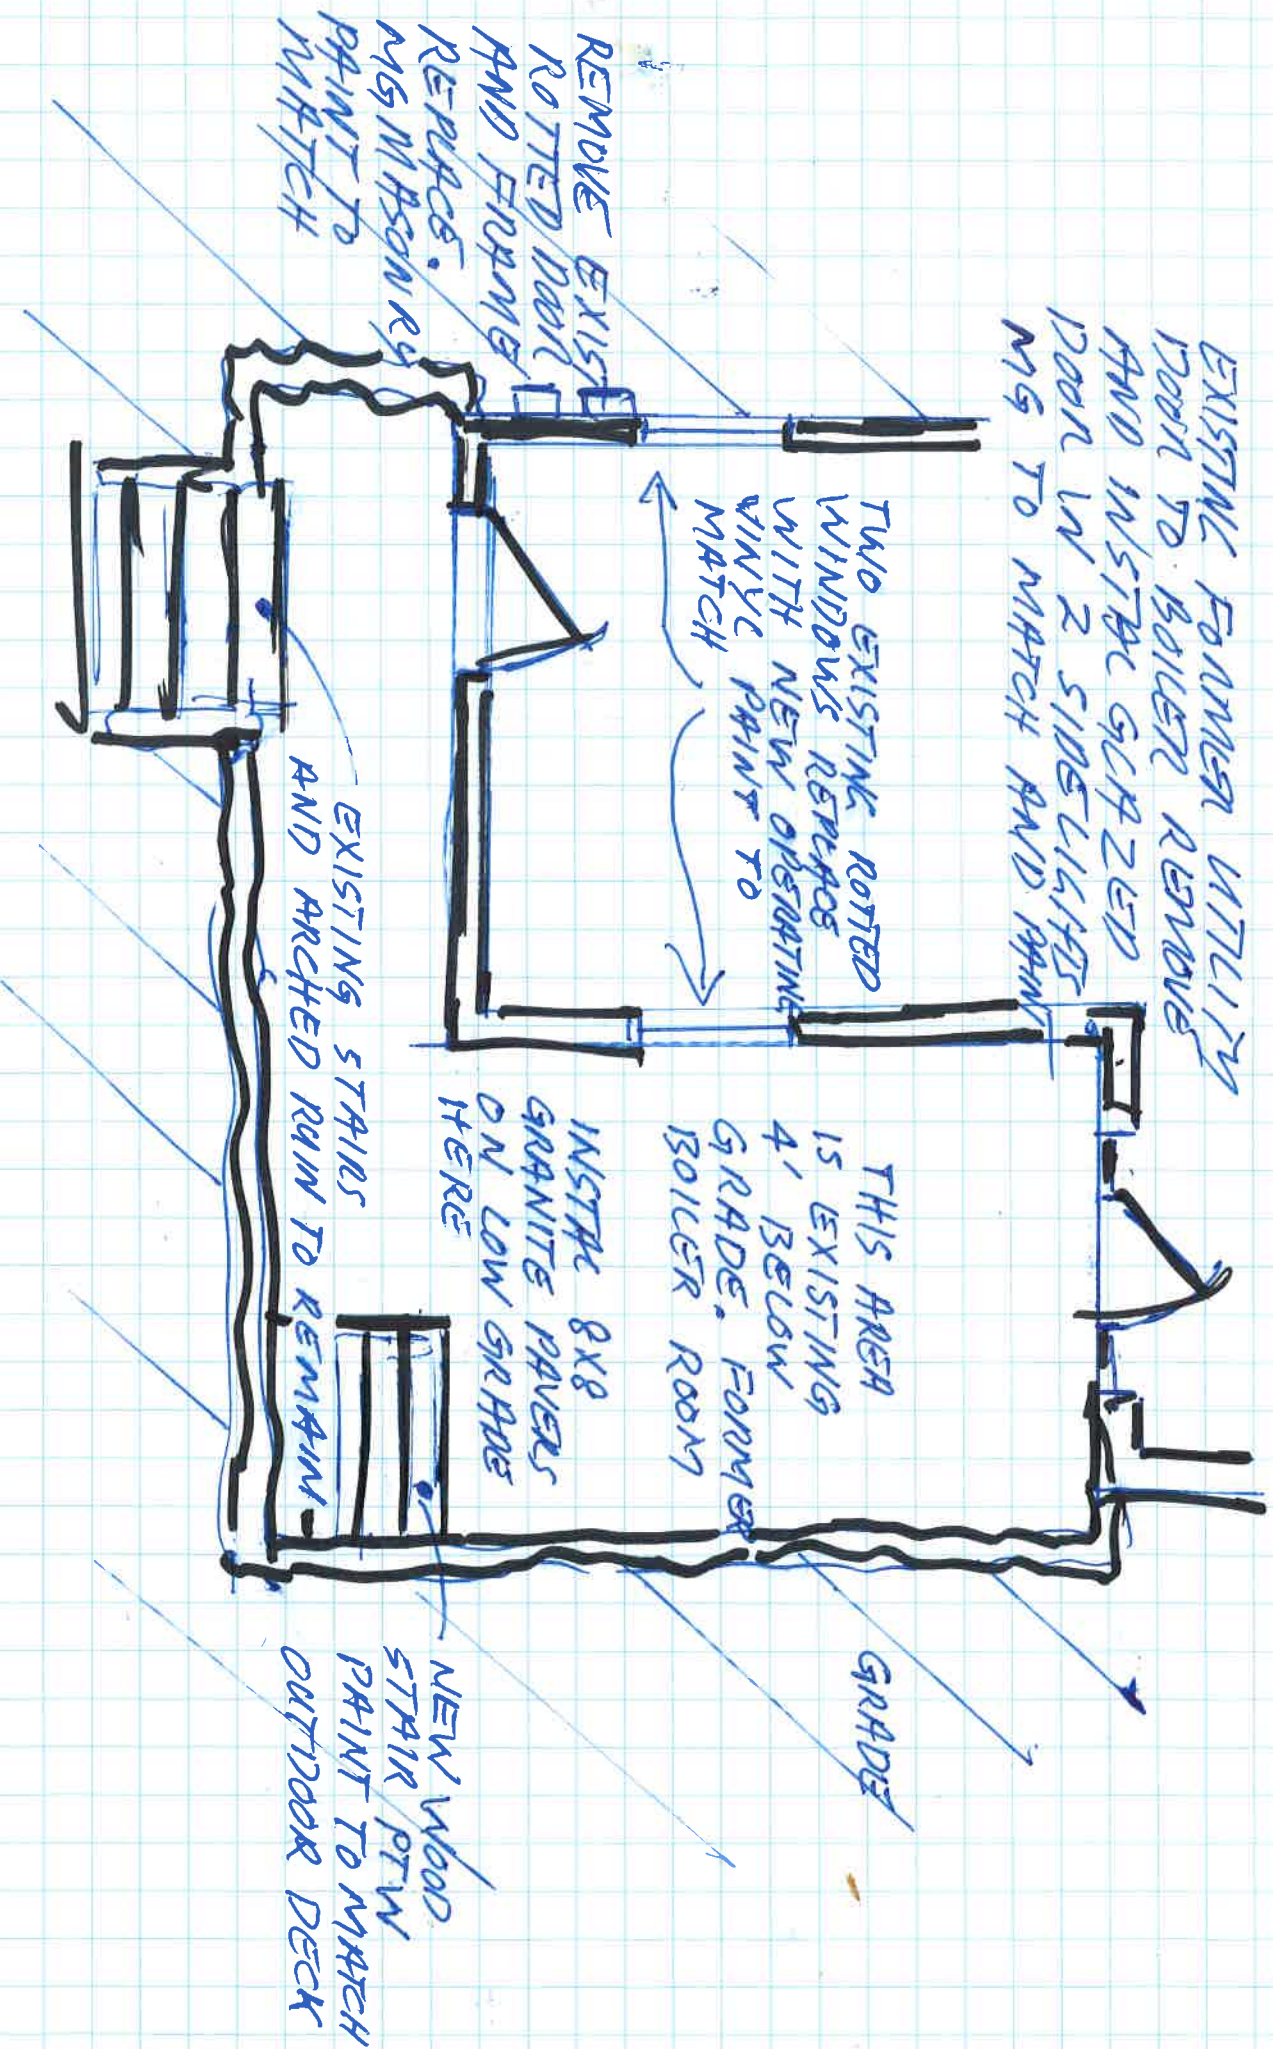 EXISTING FORMER UTILITY
DOOR TO BOILER REMOVE
AND INSTAL GLAZED
DOOR W 2 SIDELIGHTS
MG TO MATCH AND PAINT
REMOVE EXIST
ROTTED DOOR
AND FRAME
REPLACE.
MG MASONRY
PAINT TO
MATCH
TWO EXISTING ROTTED
WINDOWS REPLACE
WITH NEW OPERATING
VINYL PAINT TO
MATCH
THIS AREA
IS EXISTING
4' BELOW
GRADE. FORMER
BOILER ROOM
INSTAL 8X8
GRANITE PAVERS
ON LOW GRADE
HERE
GRADE
EXISTING STAIRS
AND ARCHED RUIN TO REMAIN
NEW WOOD
STAIR PTW
PAINT TO MATCH
OUTDOOR DECK